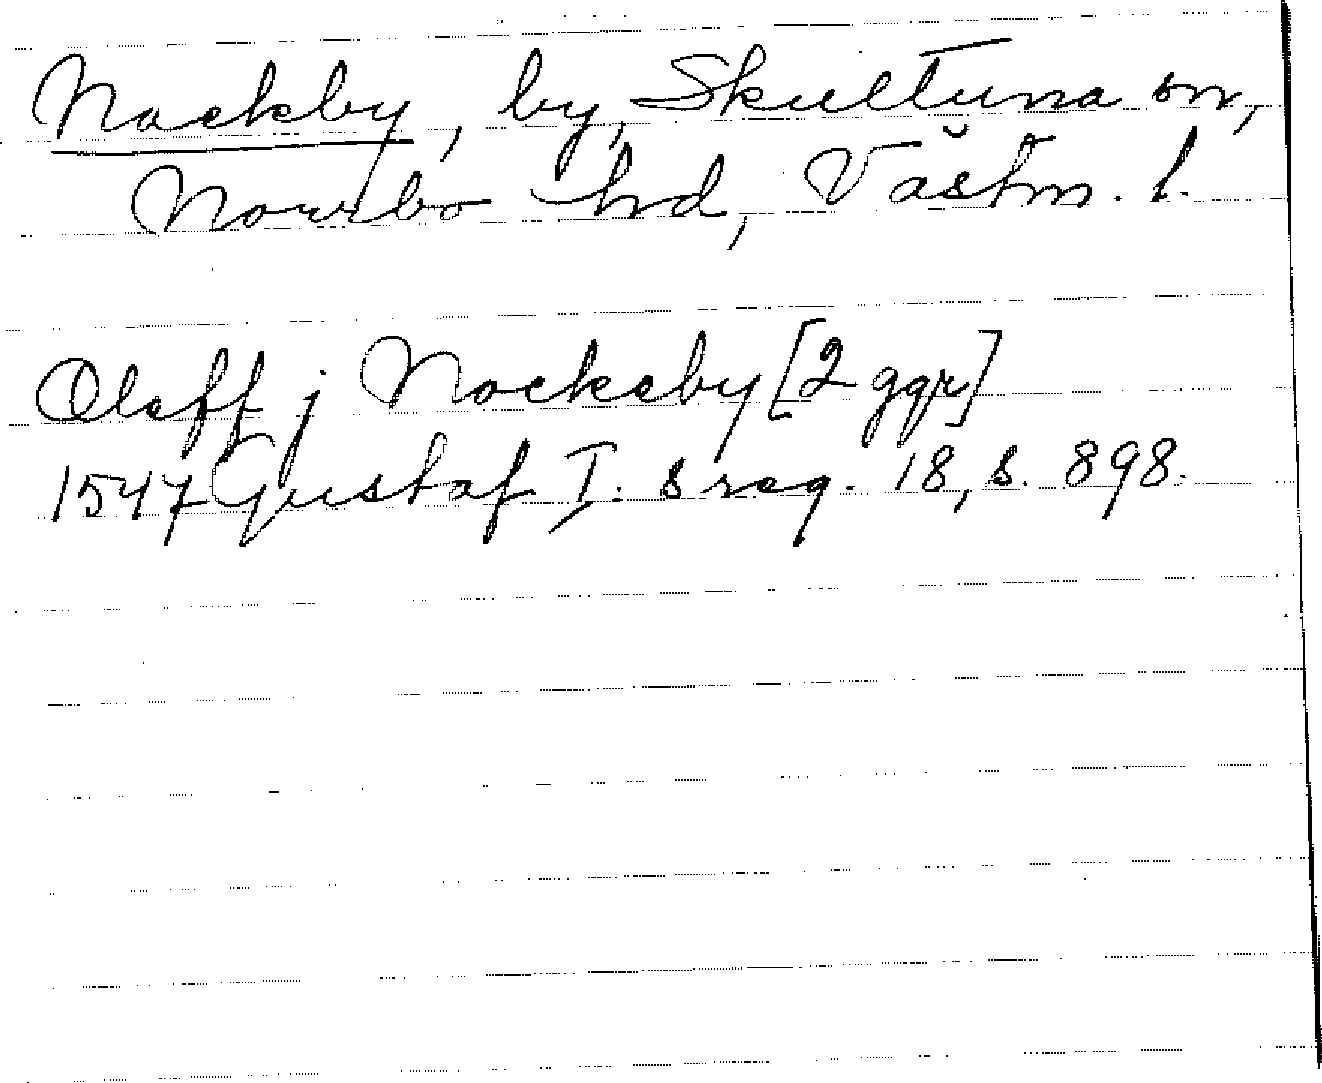 Nackby, by, Skultuna sn,
Norrbo hd, Västm. l.
Oleff j Nockeby [2 ggr]
1547 Gustaf I:s reg. 18, s. 898.